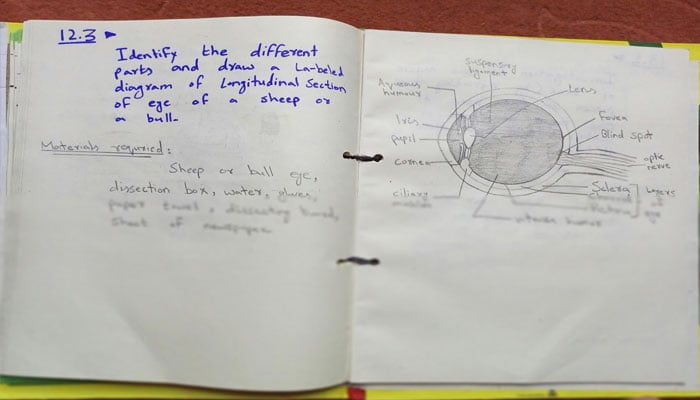 12.3
Identify the different
parts and draw a La-beled
diagram of Longitudinal Section
of eye of a sheep or
a bull.
Materials required:
Sheep or bull eye,
dissection box, water, gloves,
paper towel, dissecting board,
sheet of newspaper
suspensory
ligament
Lens
Aqueous
humour
Iris
pupil
cornea
ciliary
Fovea
Blind spot
optic
nerve
Sclera
Choroid
Retina
layers
of
eye
humor